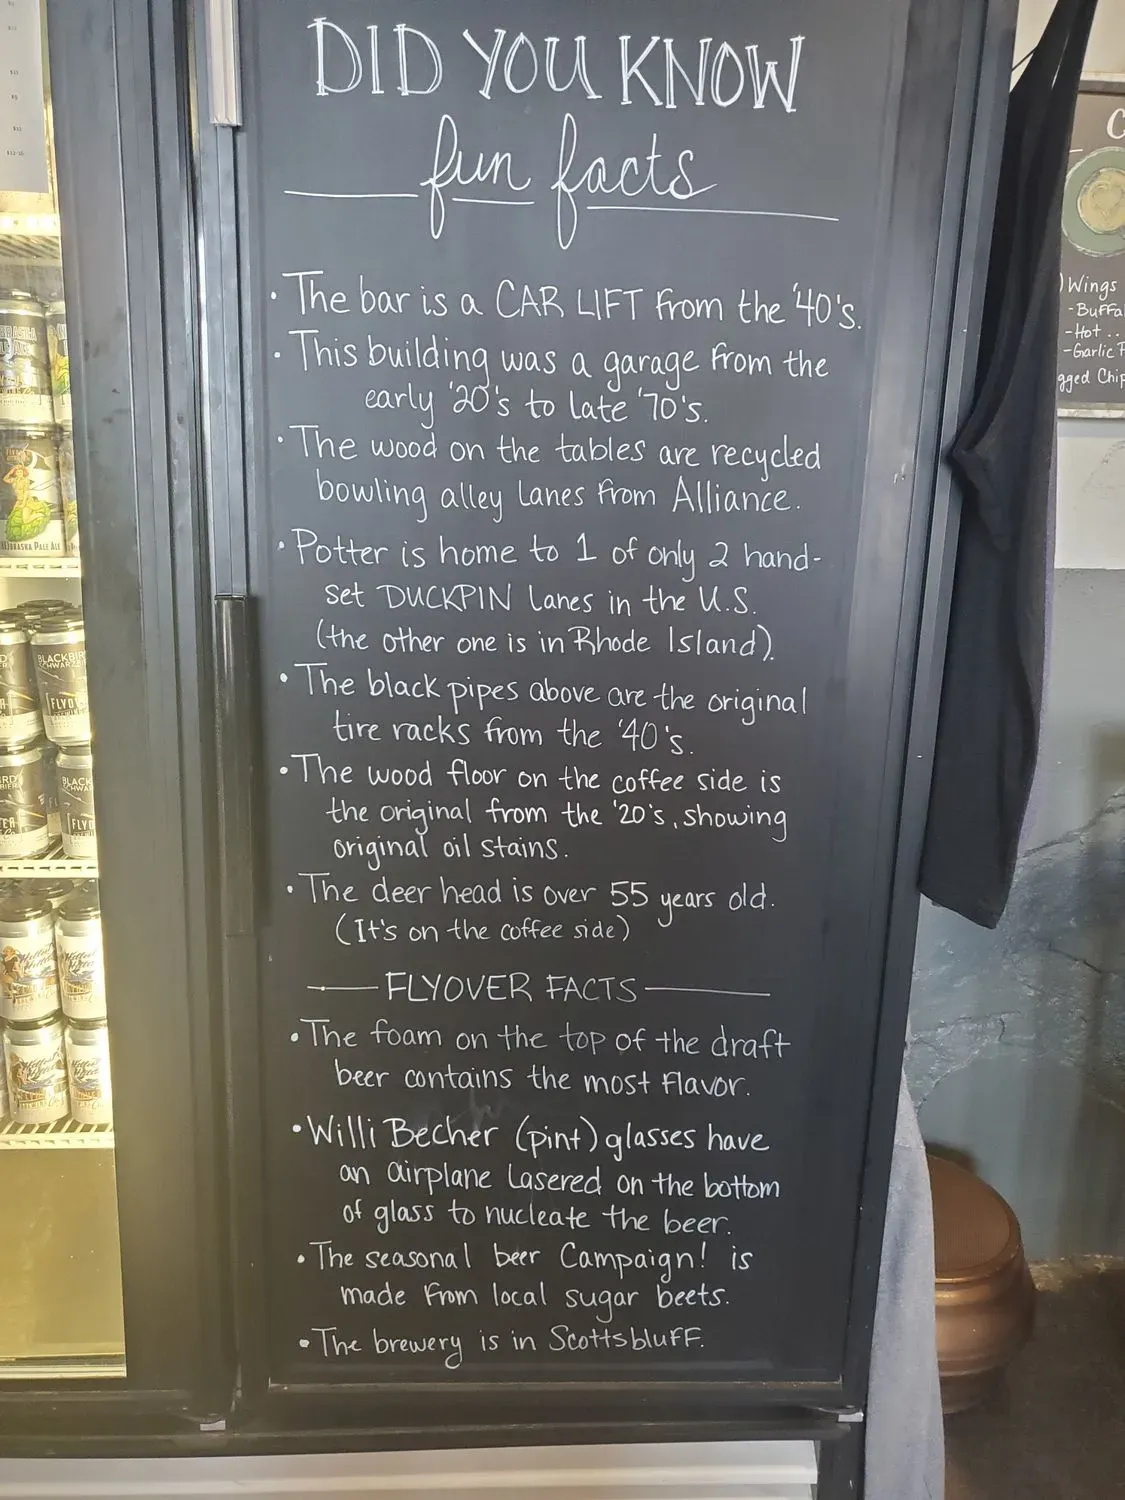 DID YOU KNOW
fun facts
• The bar is a CAR LIFT from the '40's.
• This building was a garage from the
early '20's to late '70's.
• The wood on the tables are recycled
bowling alley lanes from Alliance.
• Potter is home to 1 of only 2 hand-
set DUCKPIN lanes in the U.S.
(the other one is in Rhode Island).
• The black pipes above are the original
tire racks from the '40's.
• The wood floor on the coffee side is
the original from the '20's, showing
original oil stains.
• The deer head is over 55 years old.
(It's on the coffee side)
FLYOVER FACTS
• The foam on the top of the draft
beer contains the most flavor.
• Willi Becher (pint) glasses have
an airplane lasered on the bottom
of glass to nucleate the beer.
• The seasonal beer Campaign! is
made from local sugar beets.
• The brewery is in Scottsbluff.
Wings
-Hot..
-Garlic
Chip
PALE ALE
BLACKBIR
FLYO
BLACK
FLYO